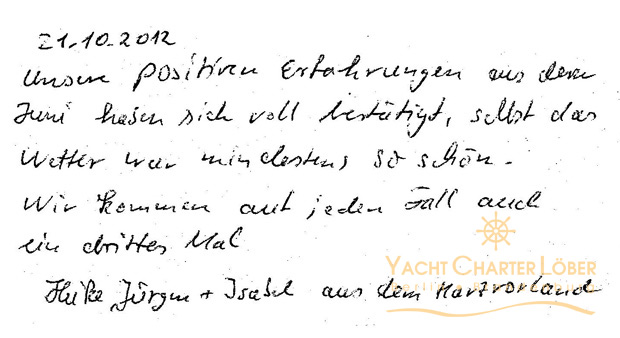 21.10.2012
Unsere positiven Erfahrungen aus dem
Juni haben sich voll bestätigt, selbst das
Wetter war mindestens so schön.
Wir kommen auf jeden Fall auch
ein drittes Mal
Heike, Jürgen + Isabel aus dem Harzvorland
YACHT CHARTER LÖBER